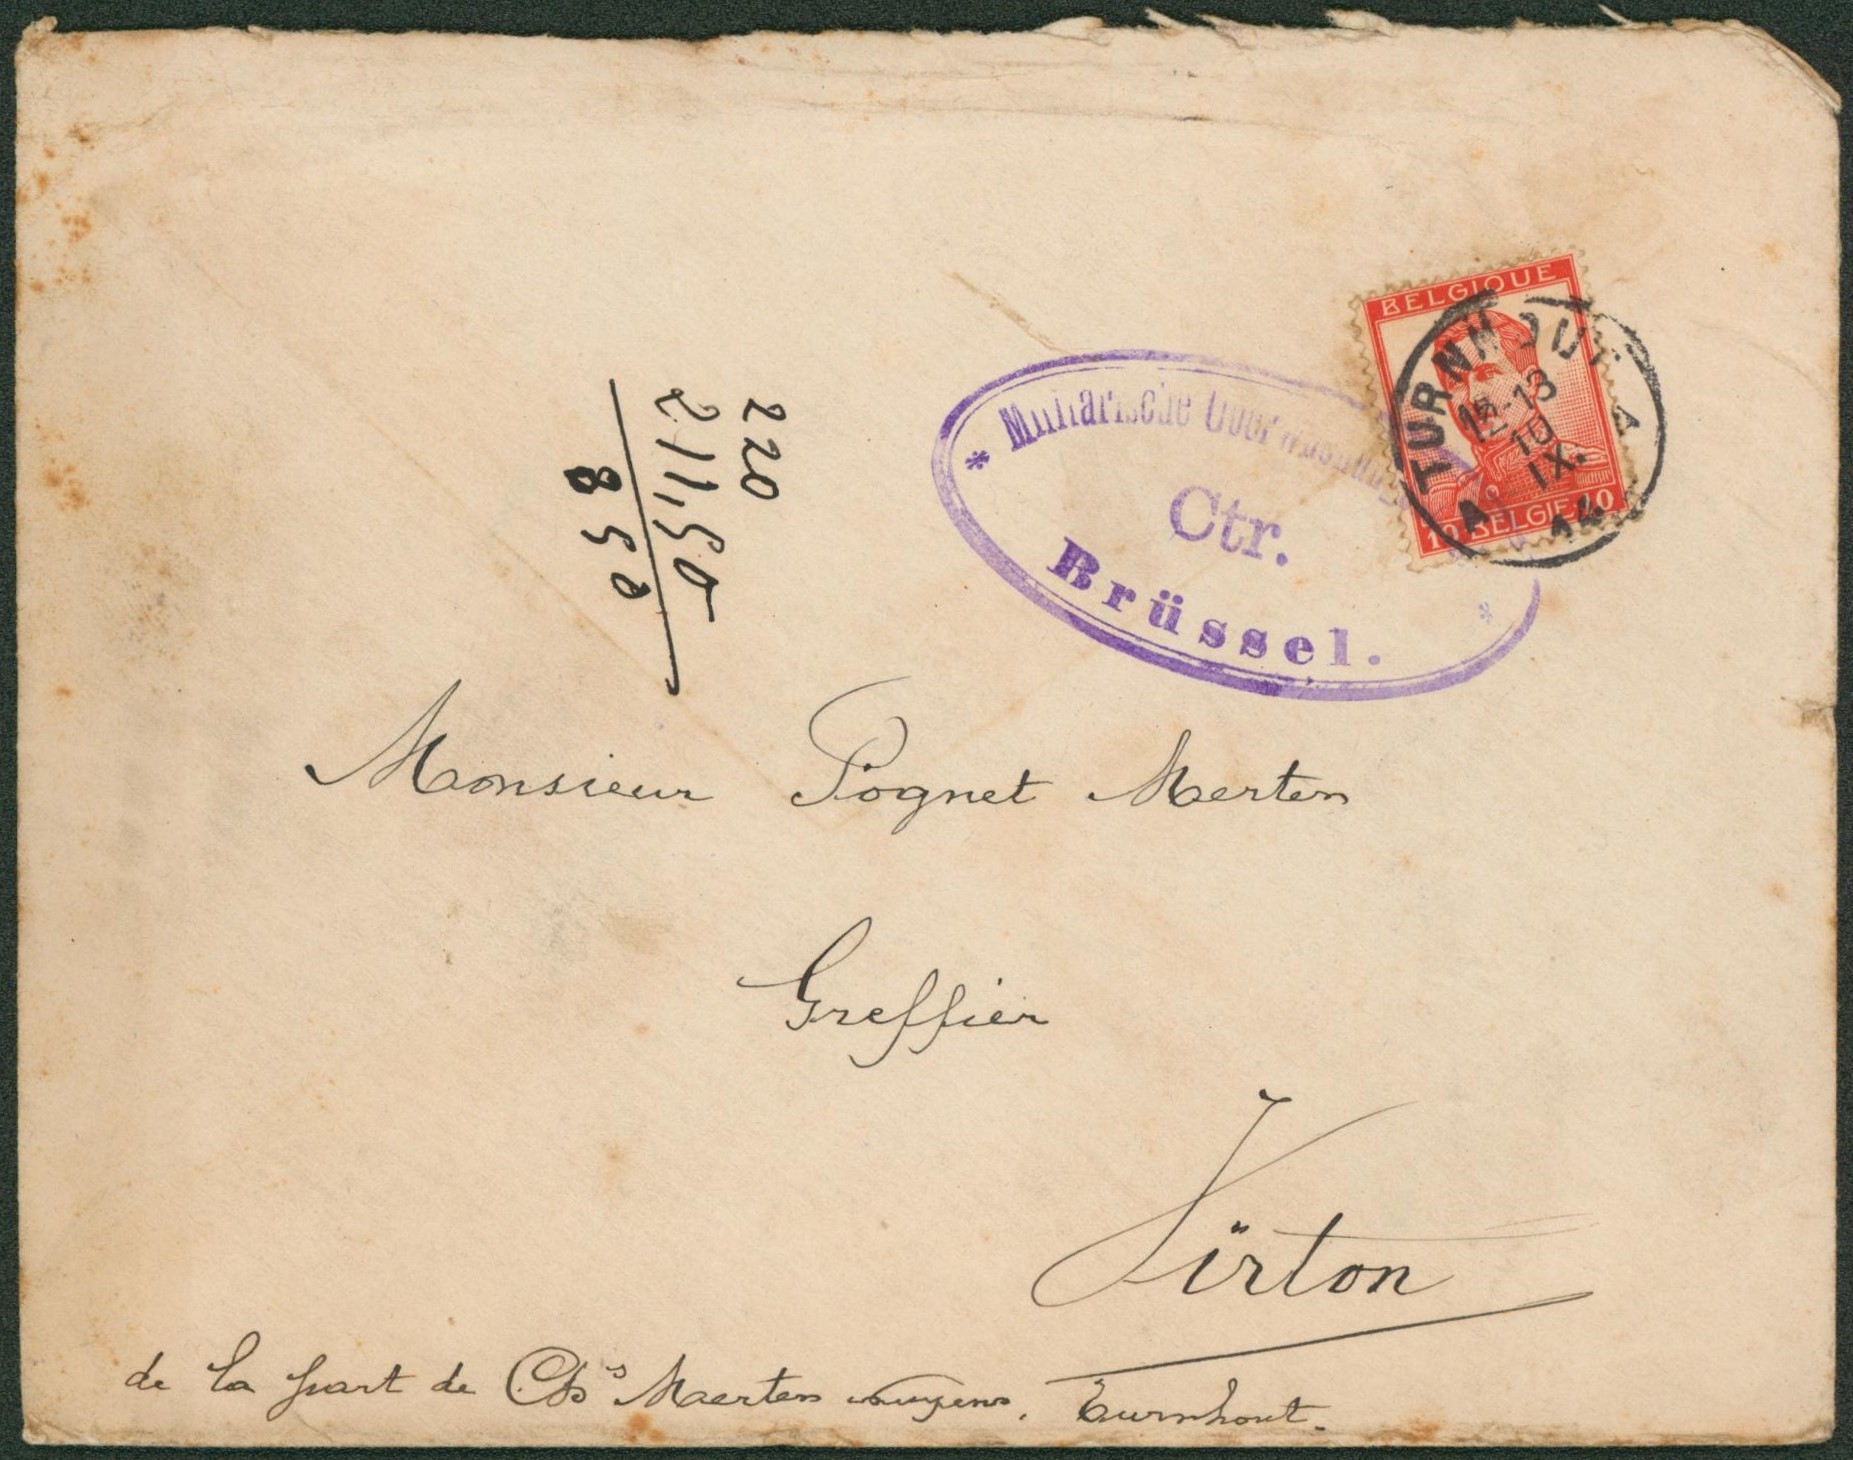 BELGIQUE
TURNHOUT A
12-13
10
IX.
14
10 BELGIE 10
* Militärische Überwachung *
Ctr.
Brüssel.
220
211,50
8 50
Monsieur Pognet Merten
Greffier
Virton
de la part de Chs Maerten Turnhout.